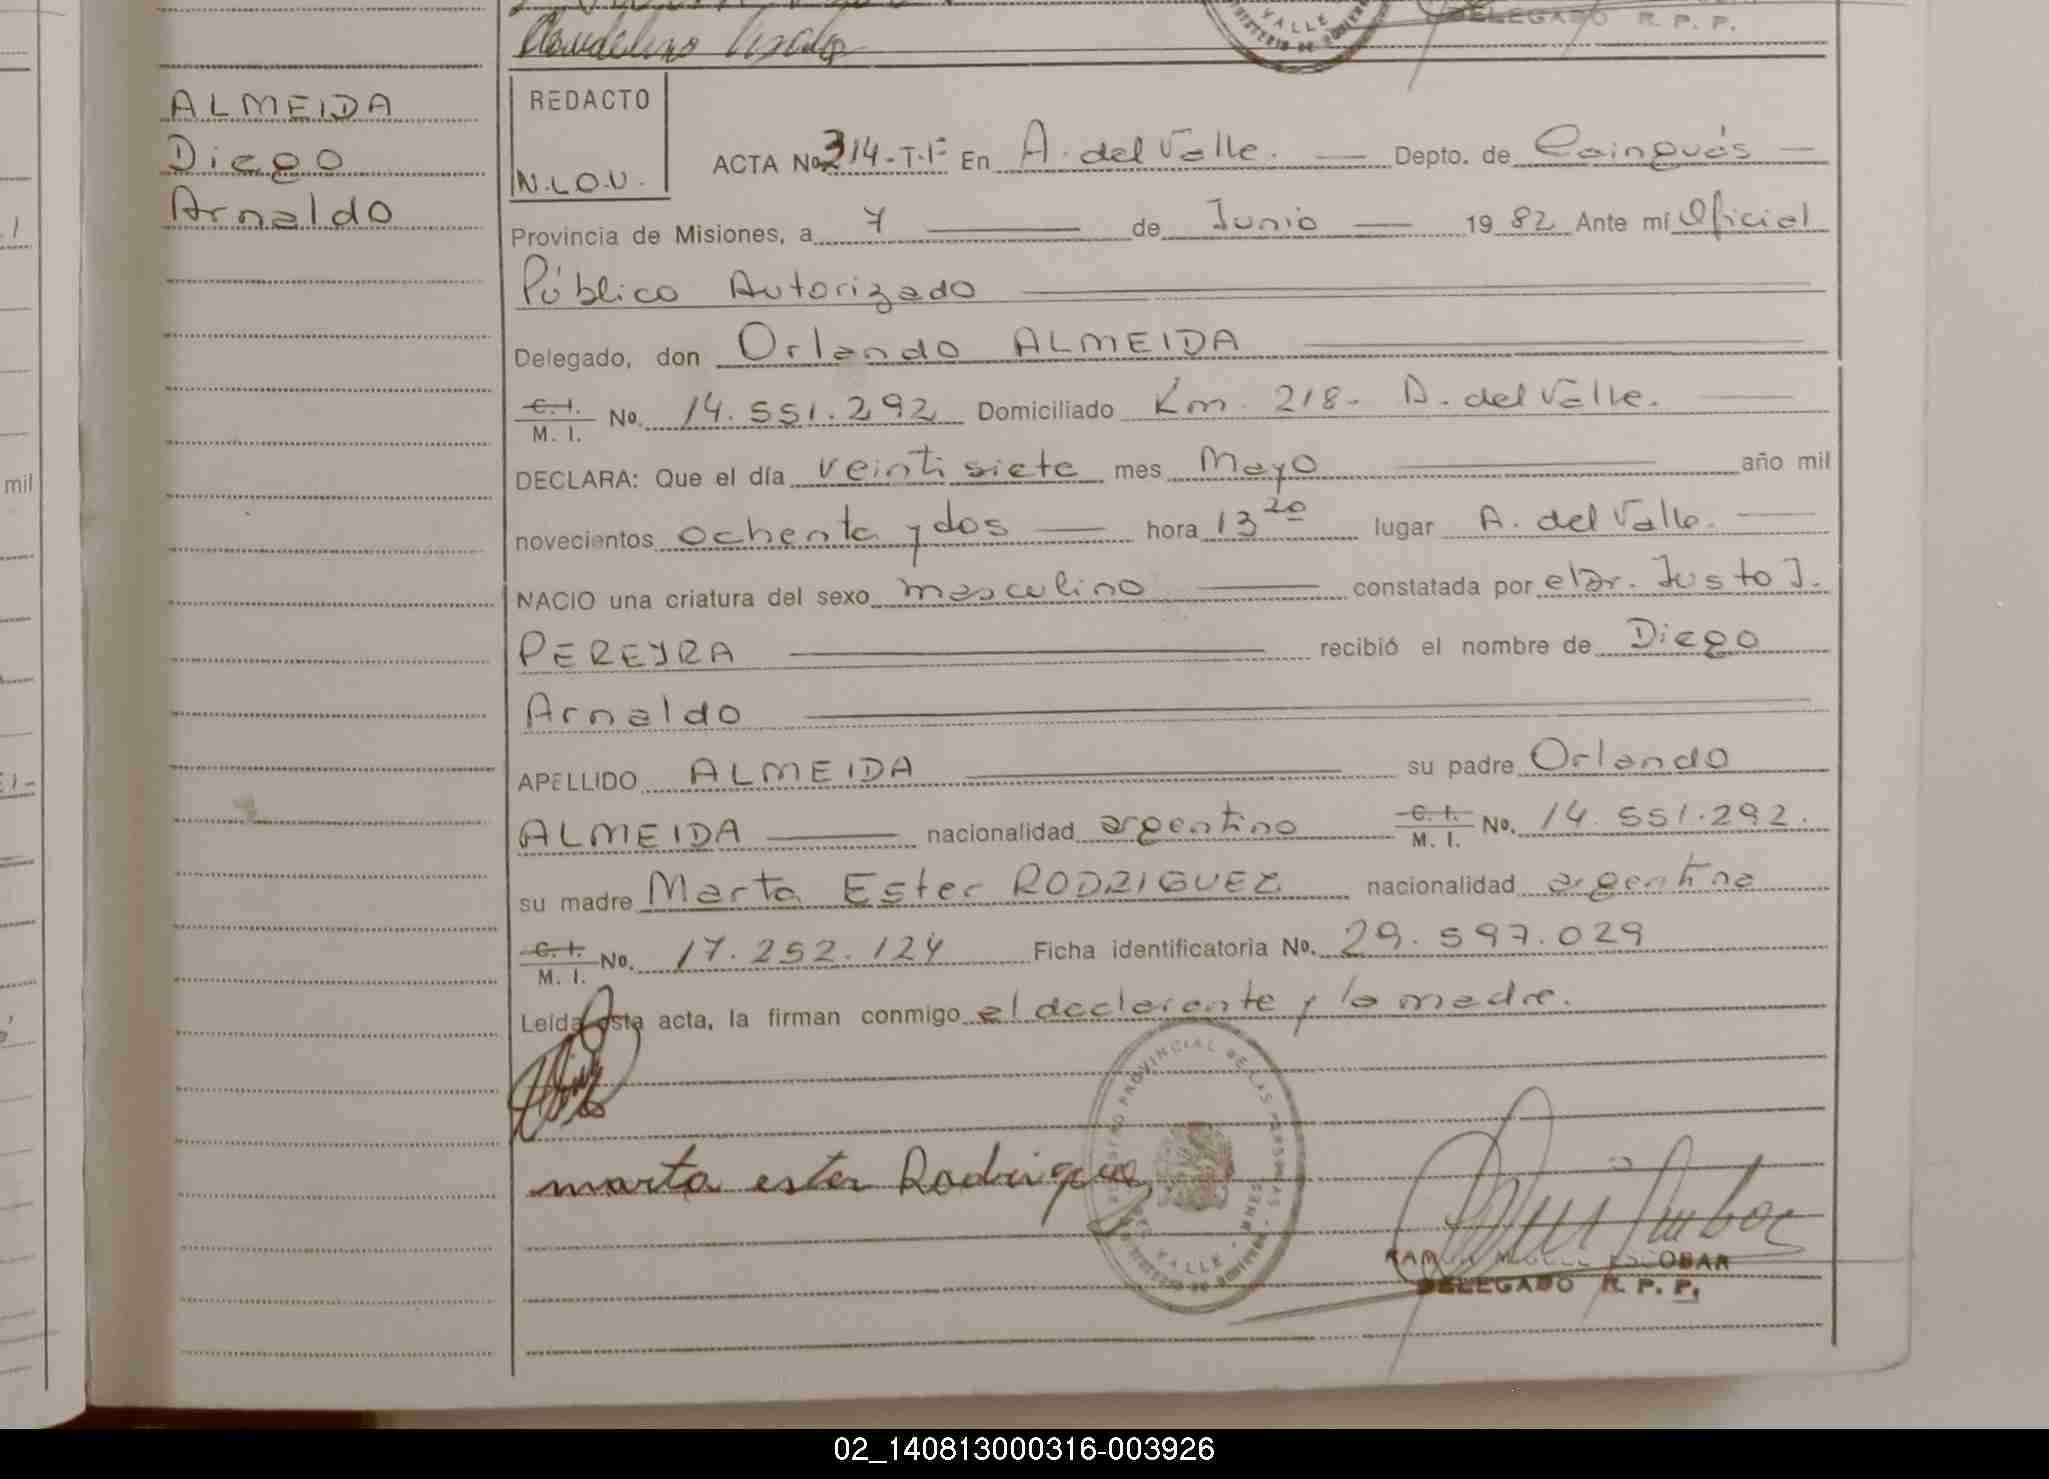 DELEGADO R. P. P.
VALLE
ALMEIDA
Diego
Arnaldo
REDACTO
N.L.O.U.
ACTA No 314-T.I= En A. del Valle. Depto. de Cainguás
Provincia de Misiones, a 7 de Junio 1982 Ante mí Oficial
Público Autorizado
Delegado, don Orlando ALMEIDA
C. I. / M. I. No. 14.551.292 Domiciliado Km. 218- A. del Valle.
DECLARA: Que el día veintisiete mes Mayo año mil
novecientos ochenta y dos hora 13 20 lugar A. del Valle.
NACIO una criatura del sexo masculino constatada por el Dr. Justo J.
PEREYRA recibió el nombre de Diego
Arnaldo
APELLIDO ALMEIDA su padre Orlando
ALMEIDA nacionalidad argentino C. I. / M. I. No. 14.551.292.
su madre Marta Ester RODRIGUEZ nacionalidad argentina
C. I. / M. I. No. 17.252.124 Ficha identificatoria No. 29.597.029
Leída esta acta, la firman conmigo el declarante y la madre.
marta ester Rodriguez
REGISTRO PROVINCIAL DE LAS PERSONAS
DEL VALLE - MNES
ESCOBAR
DELEGADO R. P. P.
mil
02_140813000316-003926